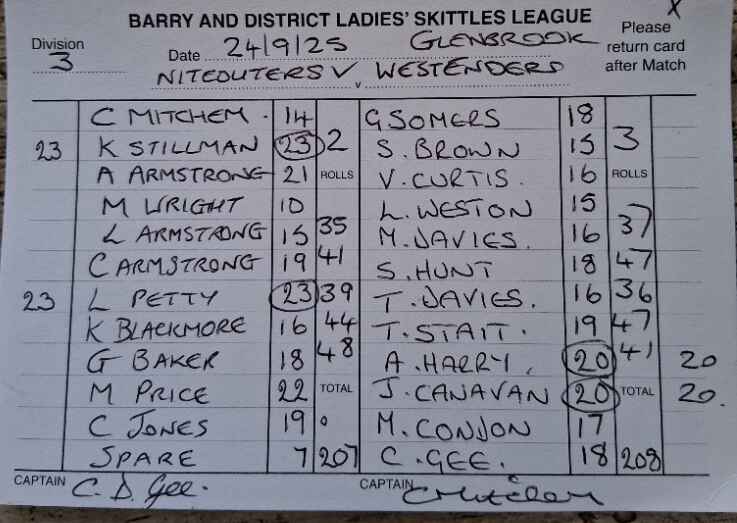 X
BARRY AND DISTRICT LADIES' SKITTLES LEAGUE
Division 3 Date 24/9/25 GLENBROOK Please return card after Match
NITEOUTERS V WESTENDERS
v
C MITCHEM. 14 G SOMERS 18
23 K STILLMAN 23 2 S. BROWN 15 3
A ARMSTRONG 21 ROLLS V. CURTIS. 16 ROLLS
M WRIGHT 10 L. WESTON 15
L ARMSTRONG 15 35 M. DAVIES. 16 37
C ARMSTRONG 19 41 S. HUNT 18 47
23 L PETTY 23 39 T. DAVIES. 16 36
K BLACKMORE 16 44 T. STAIT. 19 47
G BAKER 18 48 A. HARRY, 20 41 20
M PRICE 22 TOTAL J. CANAVAN 20 TOTAL 20.
C JONES 19 M. CONDON 17
SPARE 7 207 C. GEE. 18 208
CAPTAIN C. D. Gee. CAPTAIN